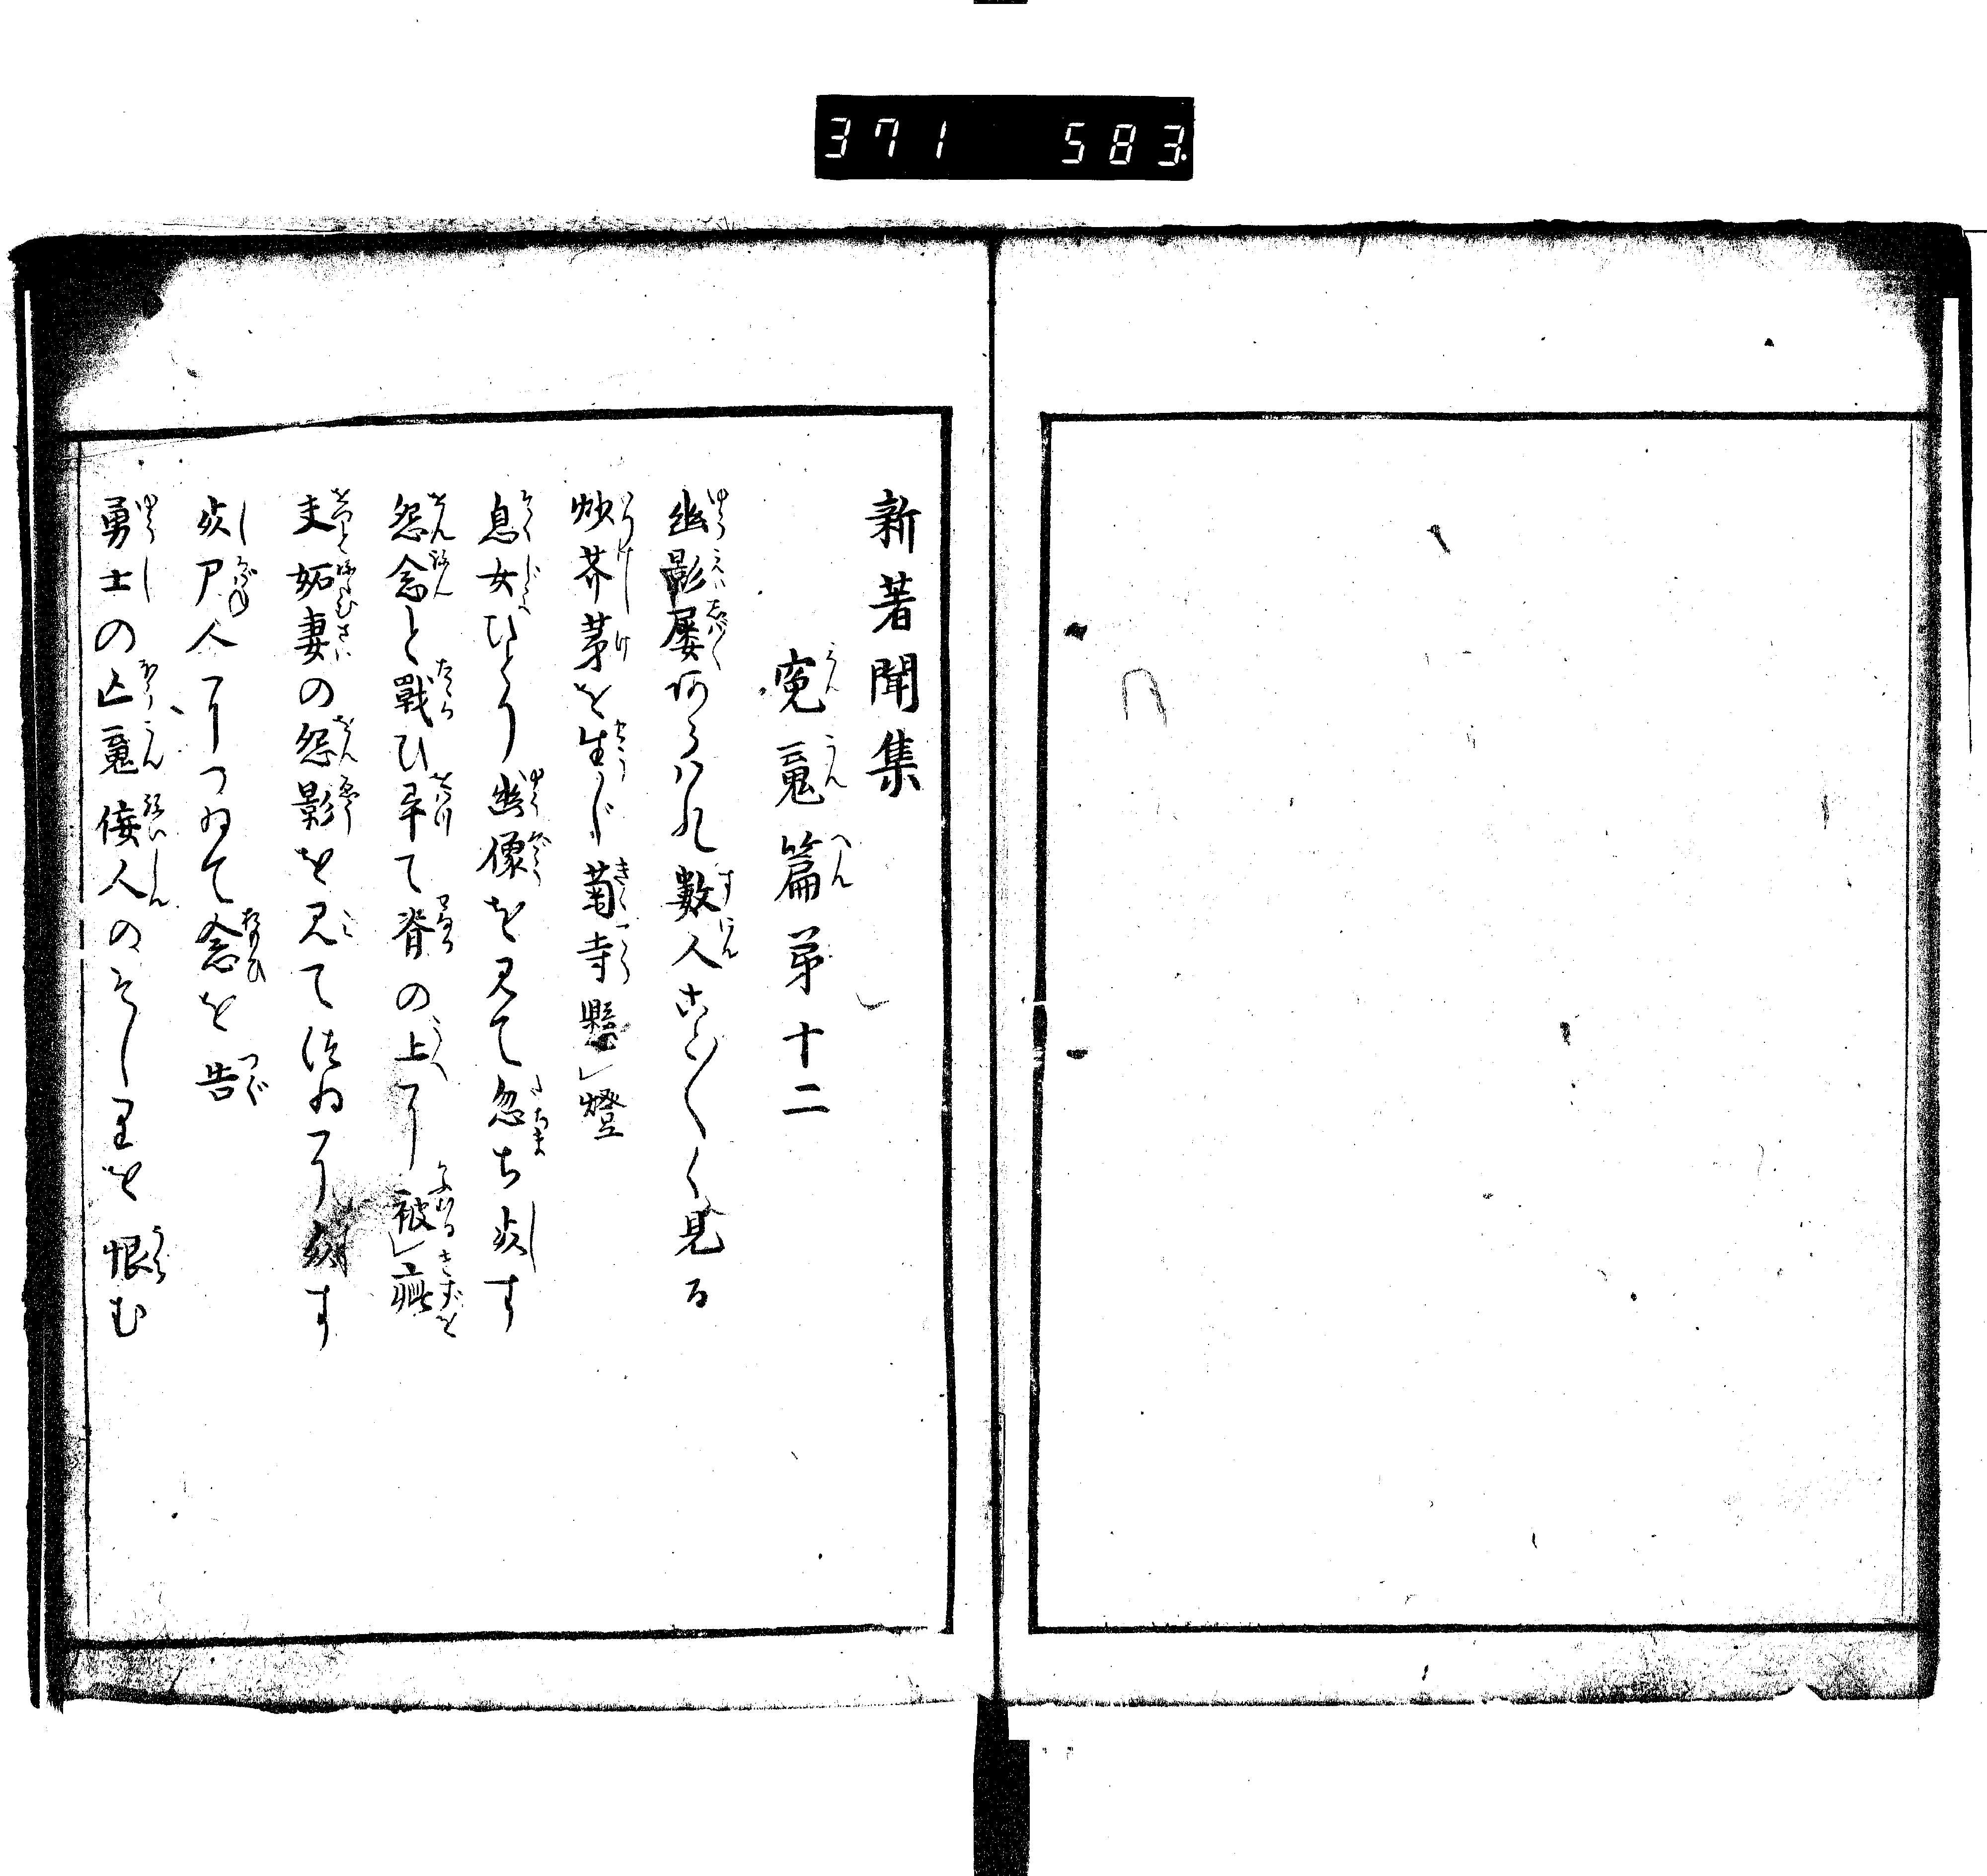 371 583
新著聞集
冤䰟篇第十二
幽影屡あらはれ数人こと〴〵く見る
炒芥芽を生じ菊寺懸レ燈
息女ひとり幽像を見て忽ち死す
怨念と戦ひ畢て脊の上に被レ疵
夫妬妻の怨影を見てつゐに死す
死尸人につゐて念を告
勇士の亡䰟佞人のそしりを恨む